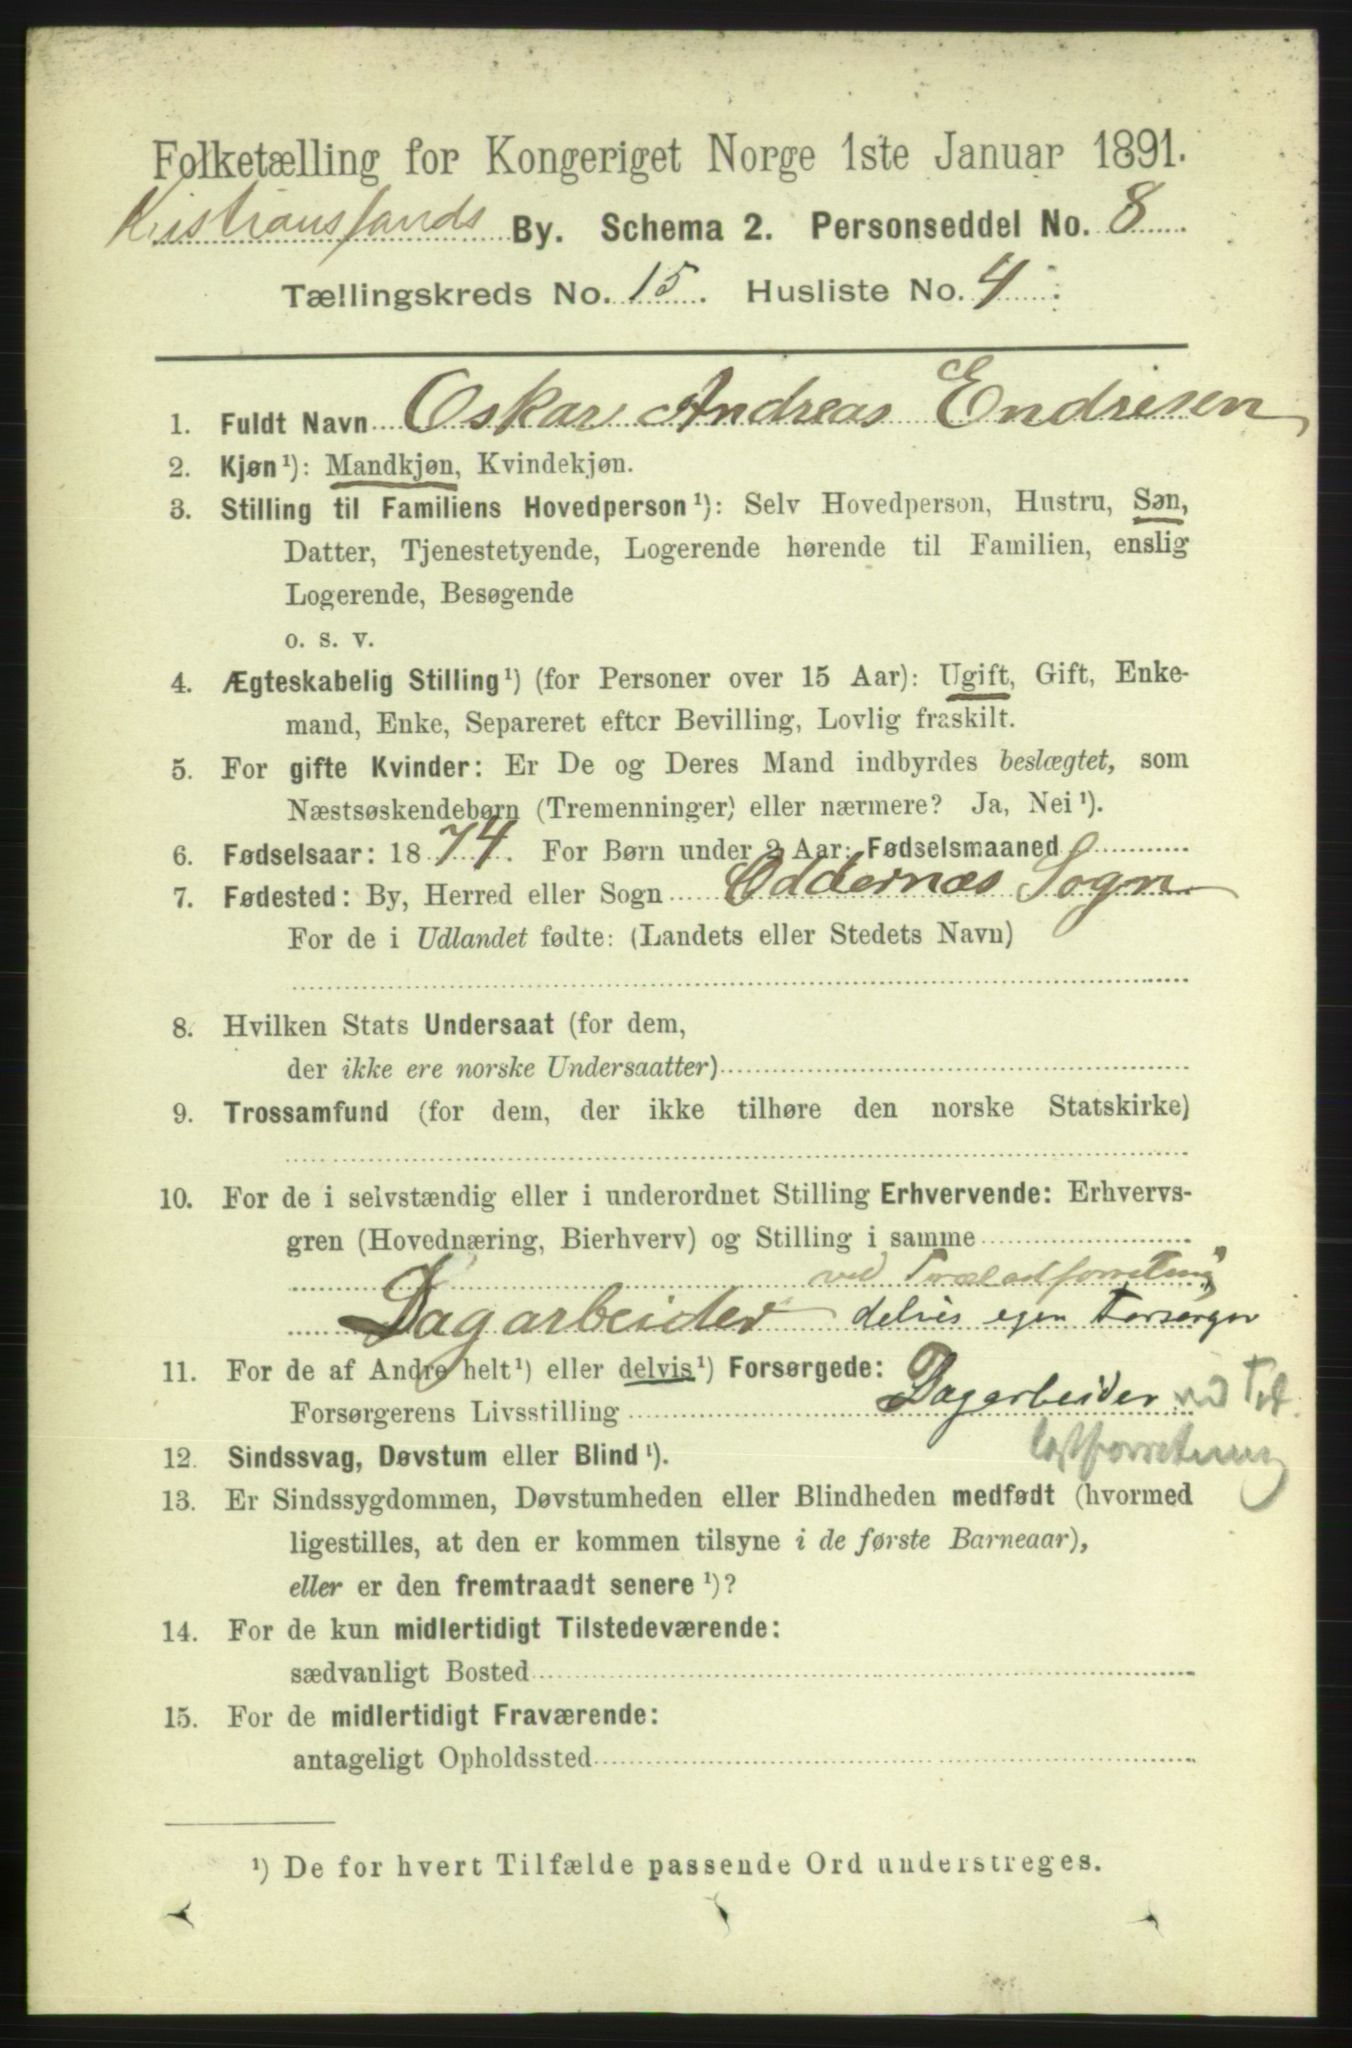 Folketælling for Kongeriget Norge 1ste Januar 1891.
Kristianssands By. Schema 2. Personseddel No. 8
Tællingskreds No. 15. Husliste No. 4
1. Fuldt Navn Oskar Andreas Endresen
2. Kjøn¹): Mandkjøn, Kvindekjøn.
3. Stilling til Familiens Hovedperson¹): Selv Hovedperson, Hustru, Søn,
Datter, Tjenestetyende, Logerende hørende til Familien, enslig
Logerende, Besøgende
o. s. v.
4. Ægteskabelig Stilling¹) (for Personer over 15 Aar): Ugift, Gift, Enke-
mand, Enke, Separeret efter Bevilling, Lovlig fraskilt.
5. For gifte Kvinder: Er De og Deres Mand indbyrdes beslægtet, som
Næstsøskendebørn (Tremenninger) eller nærmere? Ja, Nei¹).
6. Fødselsaar: 1874. For Børn under 2 Aar: Fødselsmaaned
7. Fødested: By, Herred eller Sogn Oddernæs Sogn
For de i Udlandet fødte: (Landets eller Stedets Navn)
8. Hvilken Stats Undersaat (for dem,
der ikke ere norske Undersaatter)
9. Trossamfund (for dem, der ikke tilhøre den norske Statskirke)
10. For de i selvstændig eller i underordnet Stilling Erhvervende: Erhvervs-
gren (Hovednæring, Bierhverv) og Stilling i samme
ved
Dagarbeider delvis egen Forsørger
11. For de af Andre helt¹) eller delvis¹) Forsørgede:
Forsørgerens Livsstilling Dagarbeider ved
12. Sindssvag, Døvstum eller Blind¹).
13. Er Sindssygdommen, Døvstumheden eller Blindheden medfødt (hvormed
ligestilles, at den er kommen tilsyne i de første Barneaar),
eller er den fremtraadt senere¹)?
14. For de kun midlertidigt Tilstedeværende:
sædvanligt Bosted
15. For de midlertidigt Fraværende:
antageligt Opholdssted
¹) De for hvert Tilfælde passende Ord understreges.